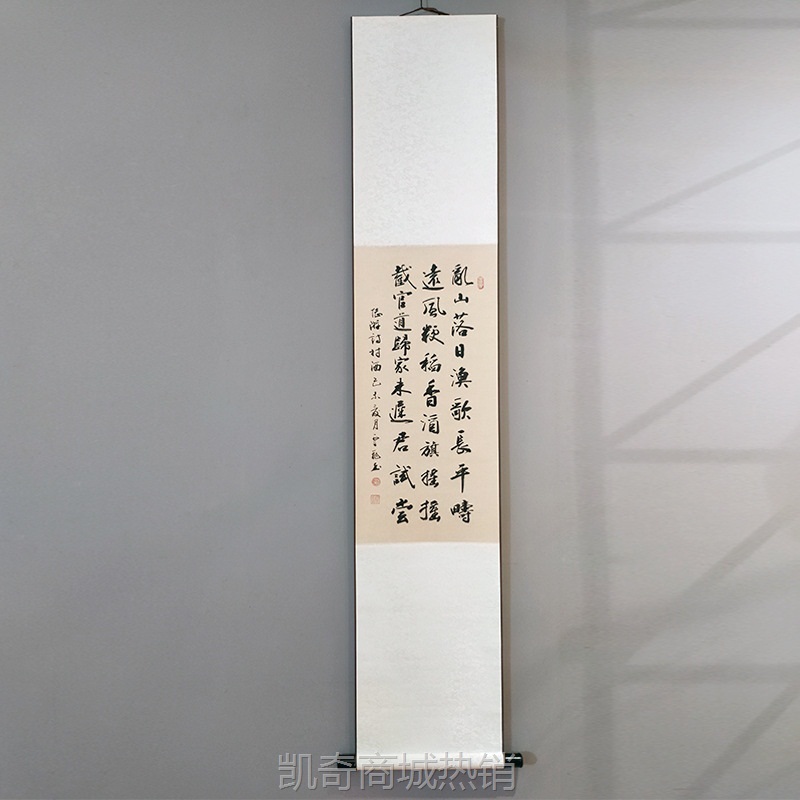 亂山落日漁歌長平疇
遠風粳稻香酒旗搖搖
截官道歸家未遲君試嘗
游詩村酒己未夏月
凯奇商城热销